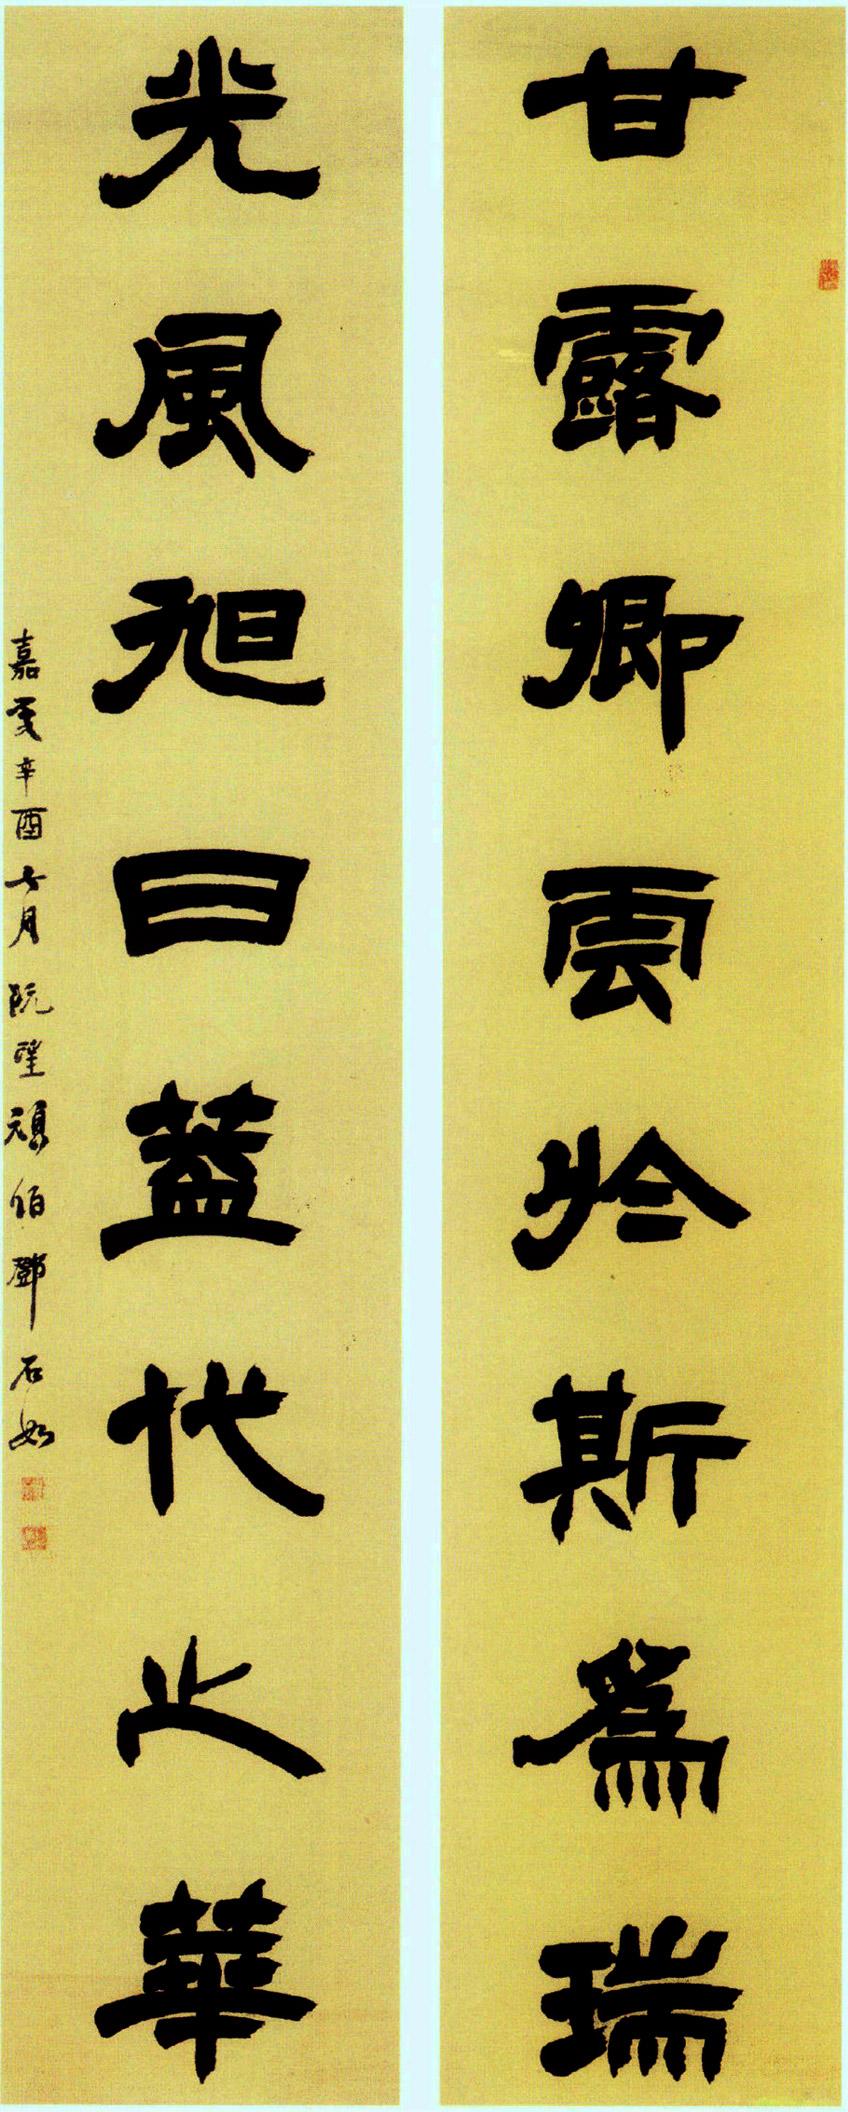 甘露卿雲於斯為瑞
光風旭日蓋代之華
嘉慶辛酉七月阮望頑伯鄧石如